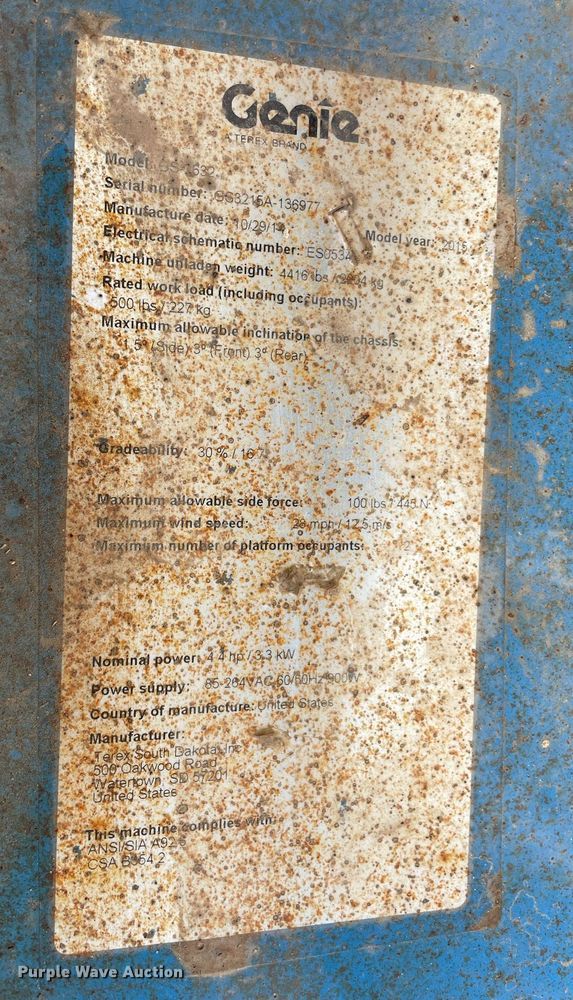 Genie
A TEREX BRAND
Model:
Serial number: GS3215A-136977
Manufacture date: 10/29/14 Model year: 2015
Electrical schematic number: ES0534
Machine unladen weight: 4416 lbs / kg
Rated work load (including occupants):
500 lbs / 227 kg
Maximum allowable inclination of the chassis:
1.5° (Side) 3° (Front) 3° (Rear)
Gradeability: 30 % /
Maximum allowable side force: 100 lbs / 445 N
Maximum wind speed: 28 mph / 12.5 m/s
Maximum number of platform occupants: 2
Nominal power: 4.4 hp / 3.3 kW
Power supply: 85-264VAC 900W
Country of manufacture: United States
Manufacturer:
Terex South Dakota, Inc
500 Oakwood Road
Watertown, SD 57201
United States
This machine complies with:
ANSI/SIA
CSA B354.2
Purple Wave Auction